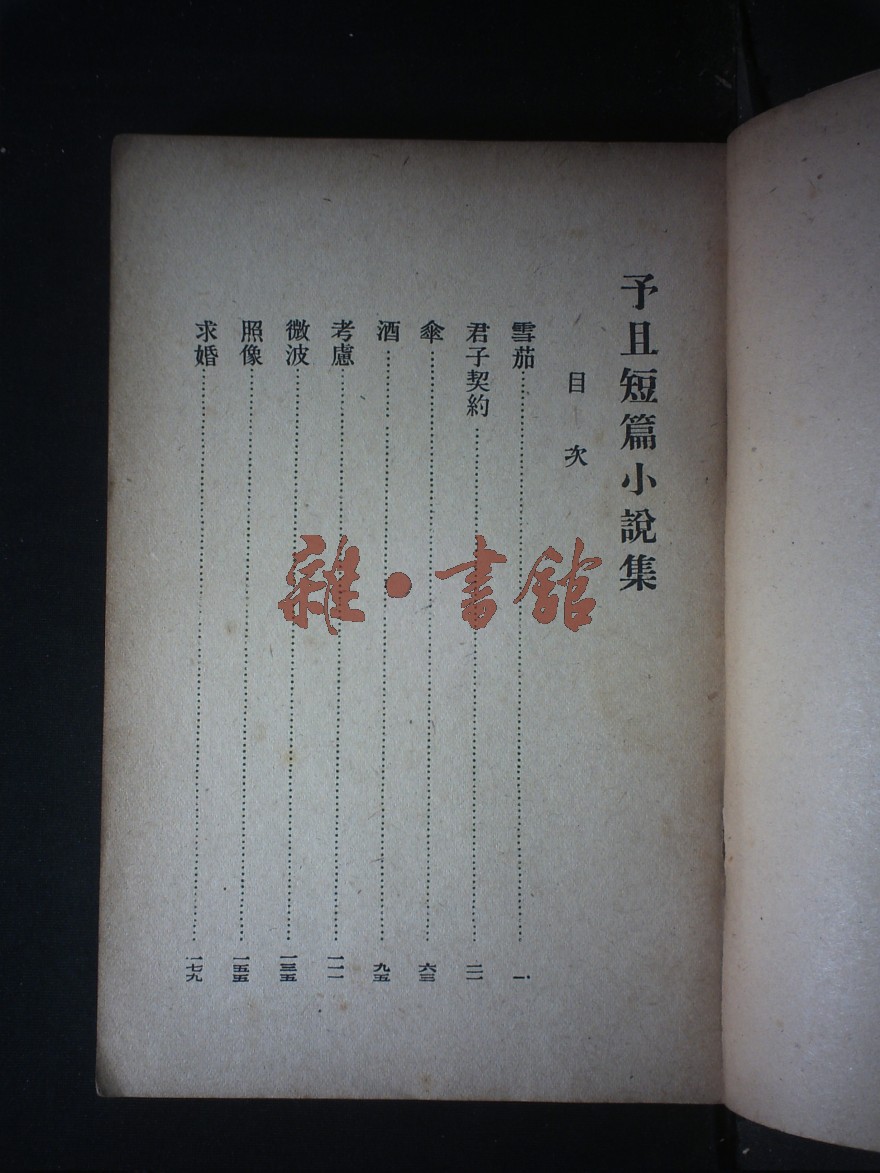 予且短篇小說集
目次
雪茄…………一
君子契約…………二一
傘…………六三
酒…………九五
考慮…………一一一
微波…………一三五
照像…………一五五
求婚…………一七九
雜·書館